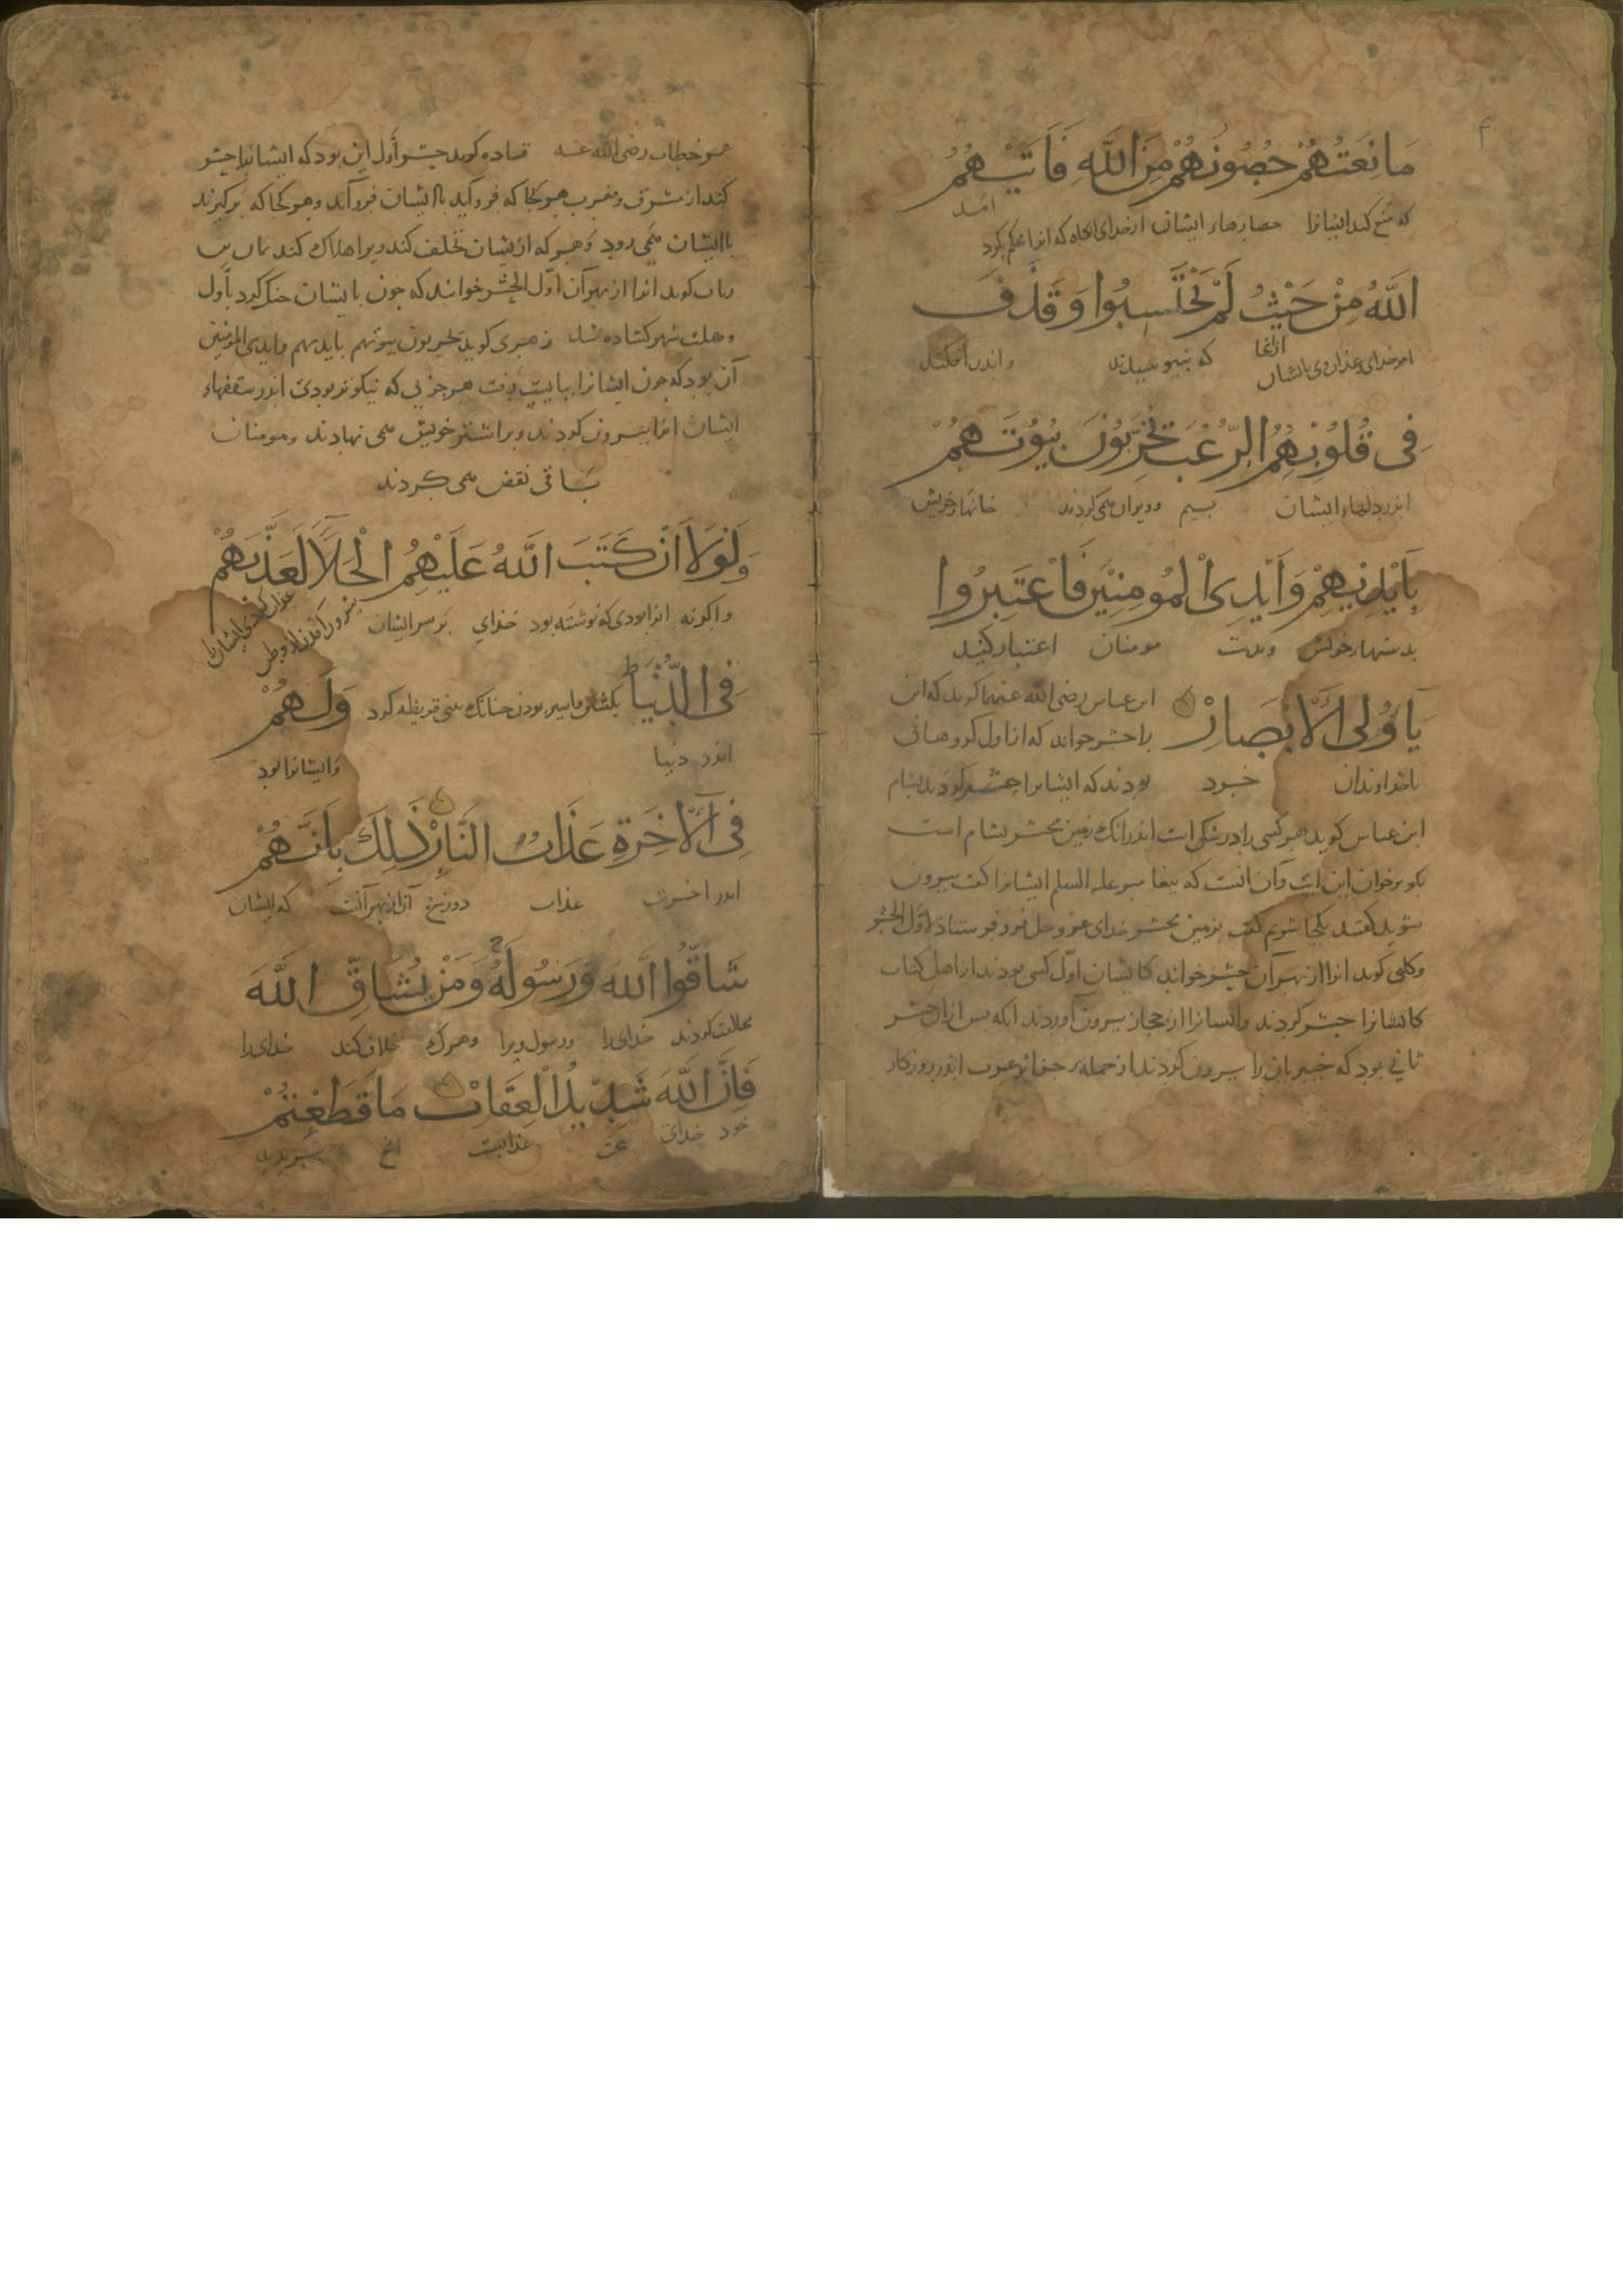 مَا نِعَتُهُمْ حُصُونُهُمْ مِنَ اللَّهِ فَاَتَيهُمُ
که منع کند ایشانرا حصارهاء ایشان از خدای که انرا محکم بکرد
امد
اللَّهُ مِنْ حَيْثُ لَمْ يَحْتَسِبُوا وَقَذَفَ
امر خدای وعذاب وی بایشان از انجا که و اندر افکند
فِى قُلُوبِهِمُ الرُّعْبَ يُخَرِّبُونَ بُيُوتَهُمْ
اندر دلهاء ایشان بیم و ویران می کردند خانهاء خویش
بِاَيْدِيهِمْ وَاَيْدِى الْمُومِنِيْنَ فَاعْتَبِرُوا
بدستهاء خویش و بدست مومنان اعتبار کنید
يَا اُولِى الْاَبْصَارْ ابن عباس رضی الله عنهما کوید که این
را حشر خواند که از اول کروهانی
یا خداوندان خرد بودند که ایشانرا حشر کردند بشام
ابن عباس کوید هر کسی را در شکی است اندر انک زمین محشر بشام است
بکو برخوان این ایت و آن انست که بیغامبر علیه السلم ایشانرا کفت بیرون
شوید کفتند بکجا شویم کفت بزمین محشر خدای عز وجل فرو فرستاد لاَوَّل الحشر
وکلبی کوید انرا از بهر آن حشر خواند کایشان اوّل کسی بودند از اهل کتاب
کایشانرا حشر کردند وایشانرا از حجاز بیرون آوردند انکه بس ازان حشر
ثانی بود که خیبریان را بیرون کردند از جمله جزایر عرب اندر روزکار
عمر خطاب رضی الله عنه قتاده کوید حشر أول این بود که ایشانرا حشر
کند از مشرق ومغرب هر کجا که فرو آیند باایشان فرو آید وهر کجا که برکیرند
باایشان می رود وهر که ازیشان تخلف کند ویرا هلاک کند یمان بن
رباب کوید انرا از بهر آن اوّل الحَشْر خواند که جون بایشان جنک کرد باول
وهلت شهر کشاده شد زهری کوید یخربون بیوتهم بایدیهم وایدی المؤمنین
آن بود که جون ایشانرا ببایست رفت هر جوبی که نیکوتر بودی اندر سقفهاء
ایشان انرا بیرون کردند وبر اشتر خویش می نهادند ومومنان
باقی نقض می کردند
وَلَوْلَا اَنْ كَتَبَ اللَّهُ عَلَيْهِمُ الْجَلَآءَ لَعَذَّبَهُمْ
واکرنه انرا بودی که نوشته بود خدای بر سر ایشان بیرون آمدن از وطن عذاب کردی ایشانرا
فِى الدُّنْيَا بکشتن واسیر بودن جنانک ببنی قریظه کرد وَلَهُمْ
اندر دنیا وایشانرا بود
فِى الْآخِرَةِ عَذَابُ النَّارِ ذٰلِكَ بِاَنَّهُمْ
اندر اخرت عذاب دوزخ آن از بهر آنست که ایشان
شَاقُّوا اللَّهَ وَرَسُولَهُ وَمَنْ يُشَاقِّ اللَّهَ
مخالفت کردند خدای را ورسول ویرا وهرک خلاف کند خدای را
فَاِنَّ اللَّهَ شَدِيْدُ الْعِقَابْ مَا قَطَعْتُمْ
خود خدای سخت عذابست انج ببریدید